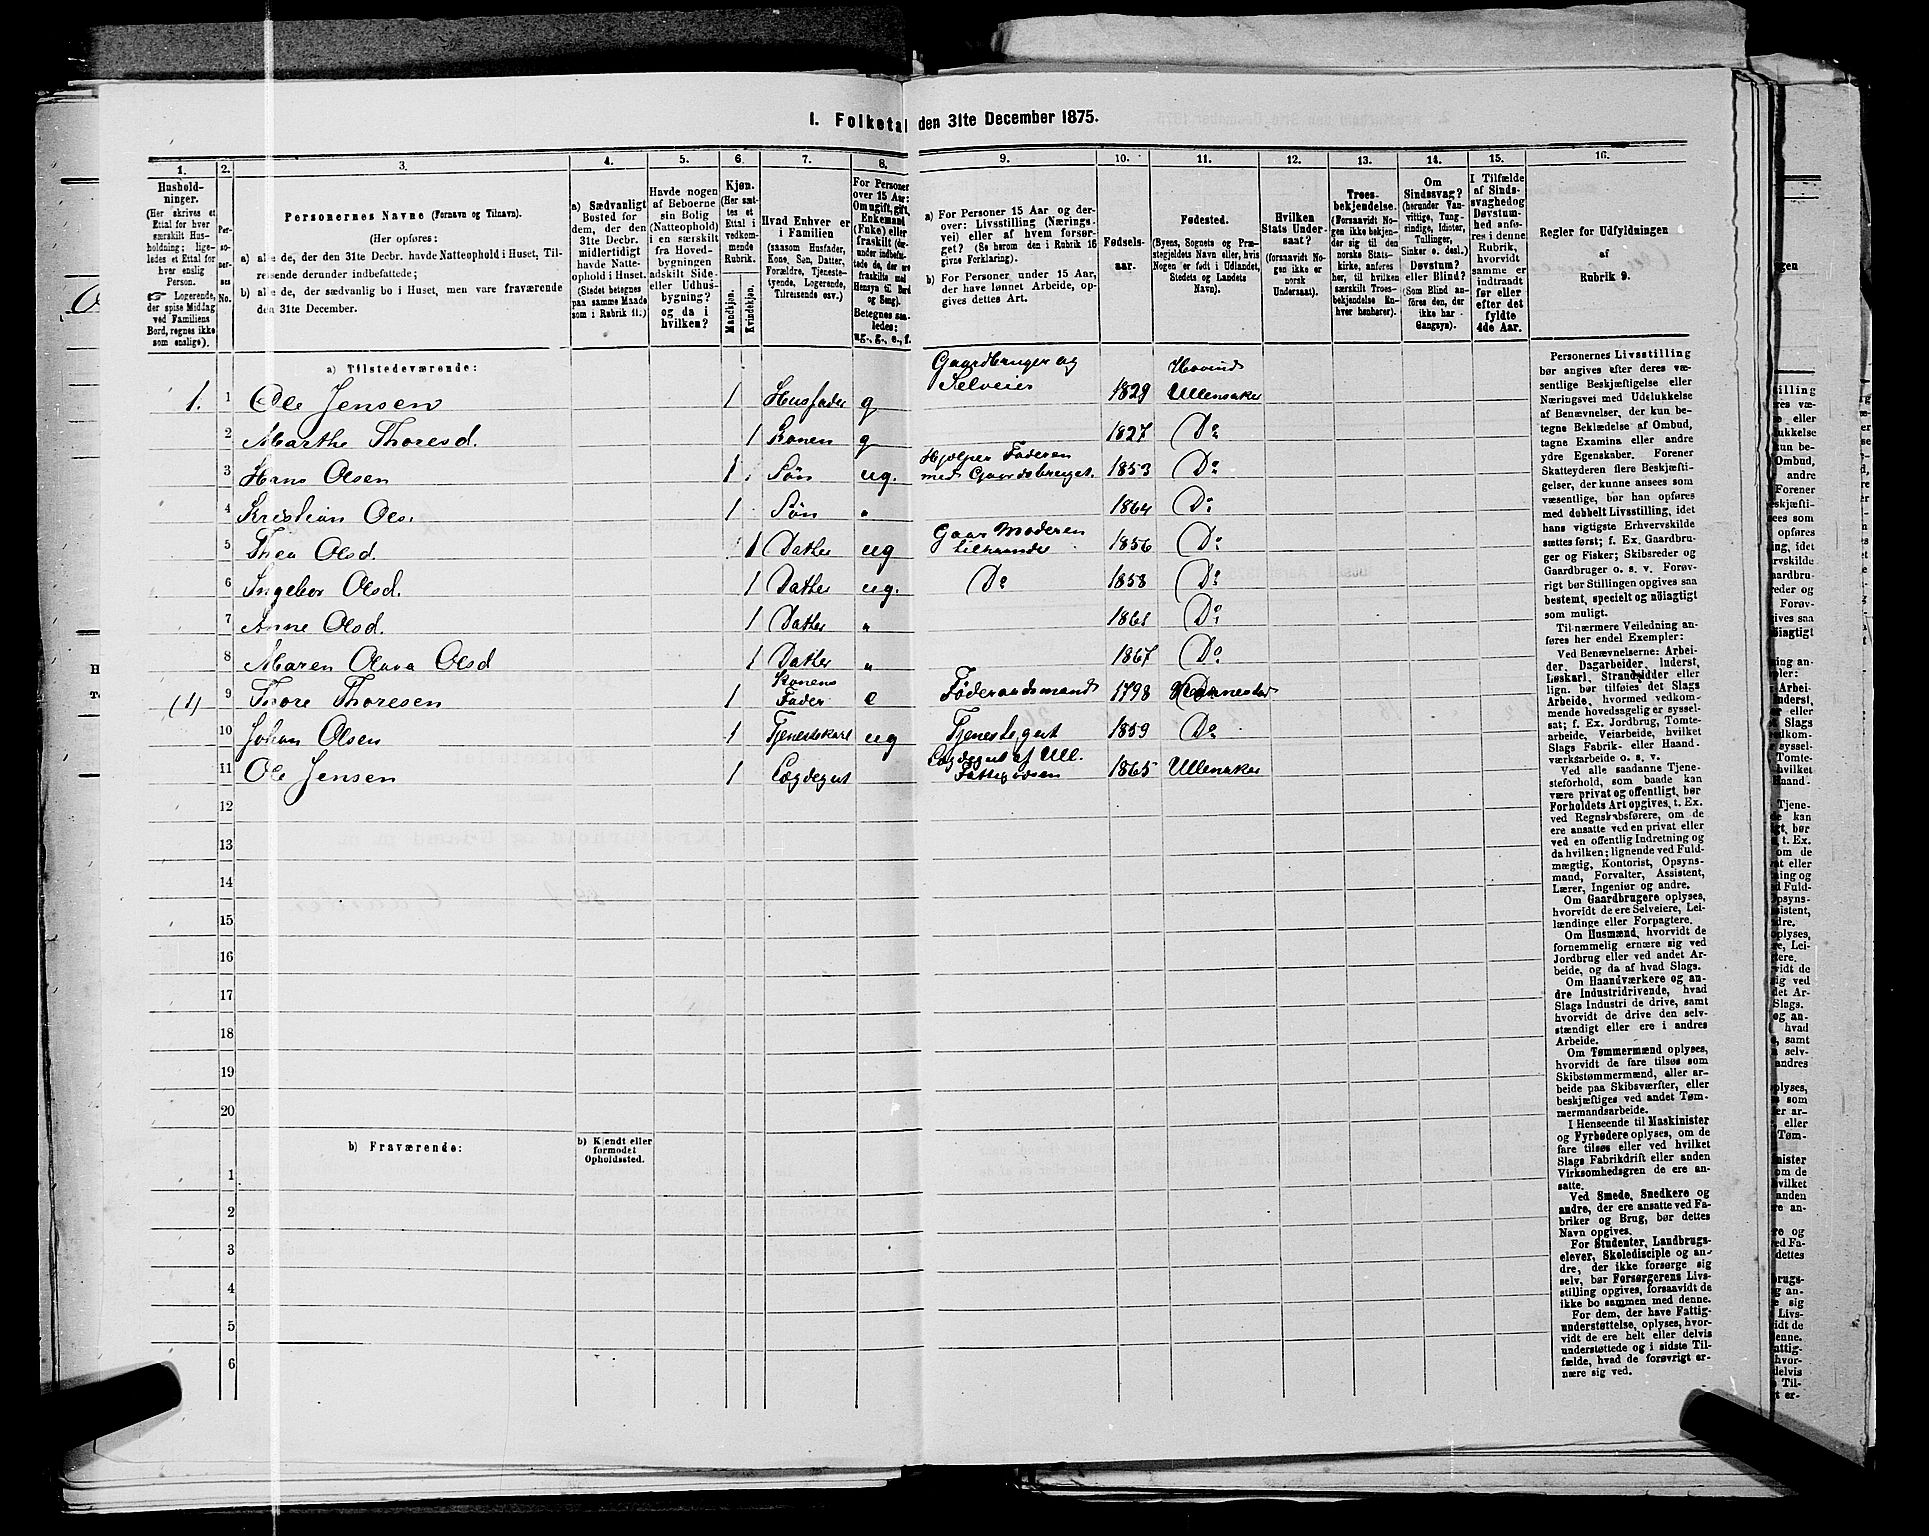 1. Folketal den 31te December 1875.
1.
Hushold-
ninger.
(Her skrives et
Ettal for hver
særskilt Hus-
holdning; lige-
ledes et Ettal for
hver enslig
Person.
Logerende,
der spise Middag
ved Familiens
Bord, regnes ikke
som enslige).
2.
Per-
so-
ner-
nes
No.
3.
Personernes Navne (Fornavn og Tilnavn).
(Her opføres:
a) alle de, der den 31te Decbr. havde Natteophold i Huset, Til-
reisende derunder indbefattede;
b) alle de, der sædvanlig bo i Huset, men vare fraværende
den 31te December.
4.
a) Sædvanligt
Bosted for
dem, der den
31te Decbr.
midlertidigt
havde Natte-
ophold i Huset.
(Stedet betegnes
paa samme Maade
som i Rubrik 11.)
5.
Havde nogen
af Beboerne
sin Bolig
(Natteophold)
i en særskilt
fra Hoved-
bygningen
adskilt Side-
eller Udhus-
bygning?
og da i
hvilken?
6.
Kjøn.
(Her sæt-
tes et
Ettal i
vedkom-
mende
Rubrik.
Mandkjøn.
Kvindekjøn.
7.
Hvad Enhver er
i Familien
(saasom Husfader,
Kone, Søn, Datter,
Forældre, Tjeneste-
tyende, Logerende,
Tilreisende osv.)
8.
For Personer
over 15 Aar:
Om ugift, gift,
Enkemand
(Enke) eller
fraskilt
Betegnes saa-
ledes:
ug., g., e., f.
9.
a) For Personer 15 Aar og der-
over: Livsstilling (Nærings-
vei) eller af hvem forsør-
get? (Se herom den i Rubrik 16
givne Forklaring).
b) For Personer under 15 Aar,
der have lønnet Arbeide, op-
gives dettes Art.
10.
Fødsels-
aar.
11.
Fødested.
(Byens, Sognets og Præ-
stegjeldets Navn eller, hvis
Nogen er født i Udlandet,
Stedets og Landets
Navn).
12.
Hvilken
Stats Under-
saat?
(forsaavidt No-
gen ikke er
norsk
Undersaat).
13.
Troes-
bekjendelse.
(Forsaavidt No-
gen ikke bekjen-
der sig til den
norske Stats-
kirke, anføres
her, til hvilken
særskilt Troes-
bekjendelse En-
hver henhører).
14.
Om
Sindssvag?
(herunder Van-
vittige, Tung-
sindige, Idioter,
Tullinger,
Sinker o. desl.)
Døvstum?
eller Blind?
(Som Blind an-
føres den, der
ikke har
Gangsyn).
15.
I Tilfælde
af Sinds-
svaghed og
Døvstum-
hed anfø-
res i denne
Rubrik,
hvorvidt
samme er
indtraadt
før eller
efter det
fyldte
4de Aar.
16.
Regler for Udfyldningen
af
Rubrik 9.
a) Tilstedeværende:
1. 1 Ole Jensen 1 Husfader g Gaardbruger og Selveier 1829 Hovind Ullensaker
2 Marthe Thoresd. 1 Konen g 1827 Do
3 Hans Olsen 1 Søn ug. Hjælper Faderen med Gaardsbruget. 1853 Do
4 Kristian Ols. 1 Søn " 1864 Do
5 Thea Olsd. 1 Datter ug Gaar Moderen tilhaande 1856 Do
6 Ingebor Olsd. 1 Datter ug. Do 1858 Do
7 Anne Olsd. 1 Datter " 1861 Do
8 Maren Olava Olsd 1 Datter " 1867 Do
(1) 9 Thore Thoresen 1 Konens Fader e Føderaadsmand 1798
10 Johan Olsen 1 Tjenestekarl ug Tjenestegut 1859 Do
11 Ole Jensen 1 Lægdegut Lægdegut af Ull. 1865 Ullensaker
12
13
14
15
16
17
18
19
20
b) Fraværende:
b) Kjendt eller
formodet
Opholdssted.
1
2
3
4
5
6
Personernes Livsstilling
bør angives efter deres væ-
sentlige Beskjæftigelse eller
Næringsvei med Udelukkelse
af Benævnelser, der kun be-
tegne Beklædelse af Ombud,
tagne Examina eller andre
ydre Egenskaber. Forener
Skatteyderen flere Beskjæfti-
gelser, der kunne ansees som
væsentlige, bør han opføres
med dobbelt Livsstilling, idet
hans vigtigste Erhvervskilde
sættes først; f. Ex. Gaardbru-
ger og Fisker; Skibsreder og
Gaardbruger o. s. v. Forøv-
rigt bør Stillingen opgives saa
bestemt, specielt og nøiagtigt
som muligt.
Til nærmere Veiledning an-
føres her endel Exempler:
Ved Benævnelserne: Arbei-
der, Dagarbeider, Inderst,
Løskarl, Strandsidder eller
lign. bør tilføies det Slags
Arbeide, hvormed vedkom-
mende hovedsagelig er syssel-
sat; f. Ex. Jordbrug, Tomte-
arbeide, Veiarbeide, hvilket
Slags Fabrik- eller Haand-
værksarbeide o. s. v.
Ved alle saadanne Tjene-
steforhold, som baade kan
være privat og offentligt, bør
Forholdets Art opgives, t. Ex.
ved Regnskabsførere, om de
ere ansatte ved en privat eller
ved en offentlig Indretning og
da hvilken; lignende ved Fuld-
mægtig, Kontorist, Opsyns-
mand, Forvalter, Assistent,
Lærer, Ingeniør og andre.
Om Gaardbrugere oplyses,
hvorvidt de ere Selveiere, Lei-
lændinge eller Forpagtere.
Om Husmænd, hvorvidt de
fornemmelig ernære sig ved
Jordbrug eller ved andet Ar-
beide, og da af hvad Slags.
Om Haandværkere og an-
dre Industridrivende, hvad
Slags Industri de drive, samt
hvorvidt de drive den selv-
stændigt eller ere i andres
Arbeide.
Om Tømmermænd oplyses,
hvorvidt de fare tilsøs som
Skibstømmermænd, eller ar-
beide paa Skibsværfter, eller
beskjæftiges ved andet Tøm-
mermandsarbeide.
I Henseende til Maskinister
og Fyrbødere oplyses, om de
fare tilsøs eller ved hvilket
Slags Fabrikdrift eller anden
Virksomhedsgren de ere an-
satte.
Ved Smede, Snedkere og
andre, der ere ansatte ved Fa-
briker og Brug, bør dettes
Navn opgives.
For Studenter, Landbrugs-
elever, Skoledisciple og an-
dre, der ikke forsørge sig
selv, bør Forsørgerens Livs-
stilling opgives, forsaavidt de
ikke bo sammen med denne.
For dem, der have Fattig-
understøttelse, oplyses, hvor-
vidt de ere helt eller delvis
understøttede og i sidste Til-
fælde, hvad de forøvrigt er-
nære sig ved.